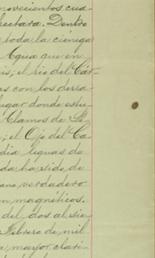 novecientos cua
hectara. Dentro
toda la cienega
Agua que en
is; el rio del Cár
as con los derra
ugar donde este
Clamos de St
; el Ojo del Ca
dia leguas de
da ha sido de
ano verdadero
on magnéticos.
del dos al sie
Febrero de mil
a, mayor clari